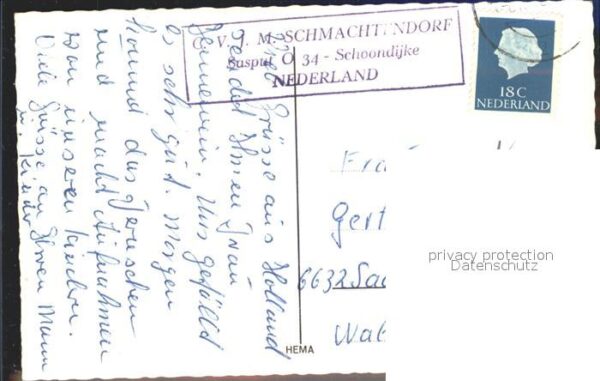 C.V.J.M. SCHMACHTENDORF
Suspul O 34 - Schoondijke
NEDERLAND
18 C
NEDERLAND
Grüsse aus Holland
sendet Ihnen Frau
Uns gefällt
es sehr gut. Morgen
kommt das Fernsehen
und macht Aufnahmen
von unseren Kindern.
Viele Grüsse an Ihren Mann
u. Kinder
Fra
Gert
6632 Saa
Wal
HEMA
privacy protection
Datenschutz